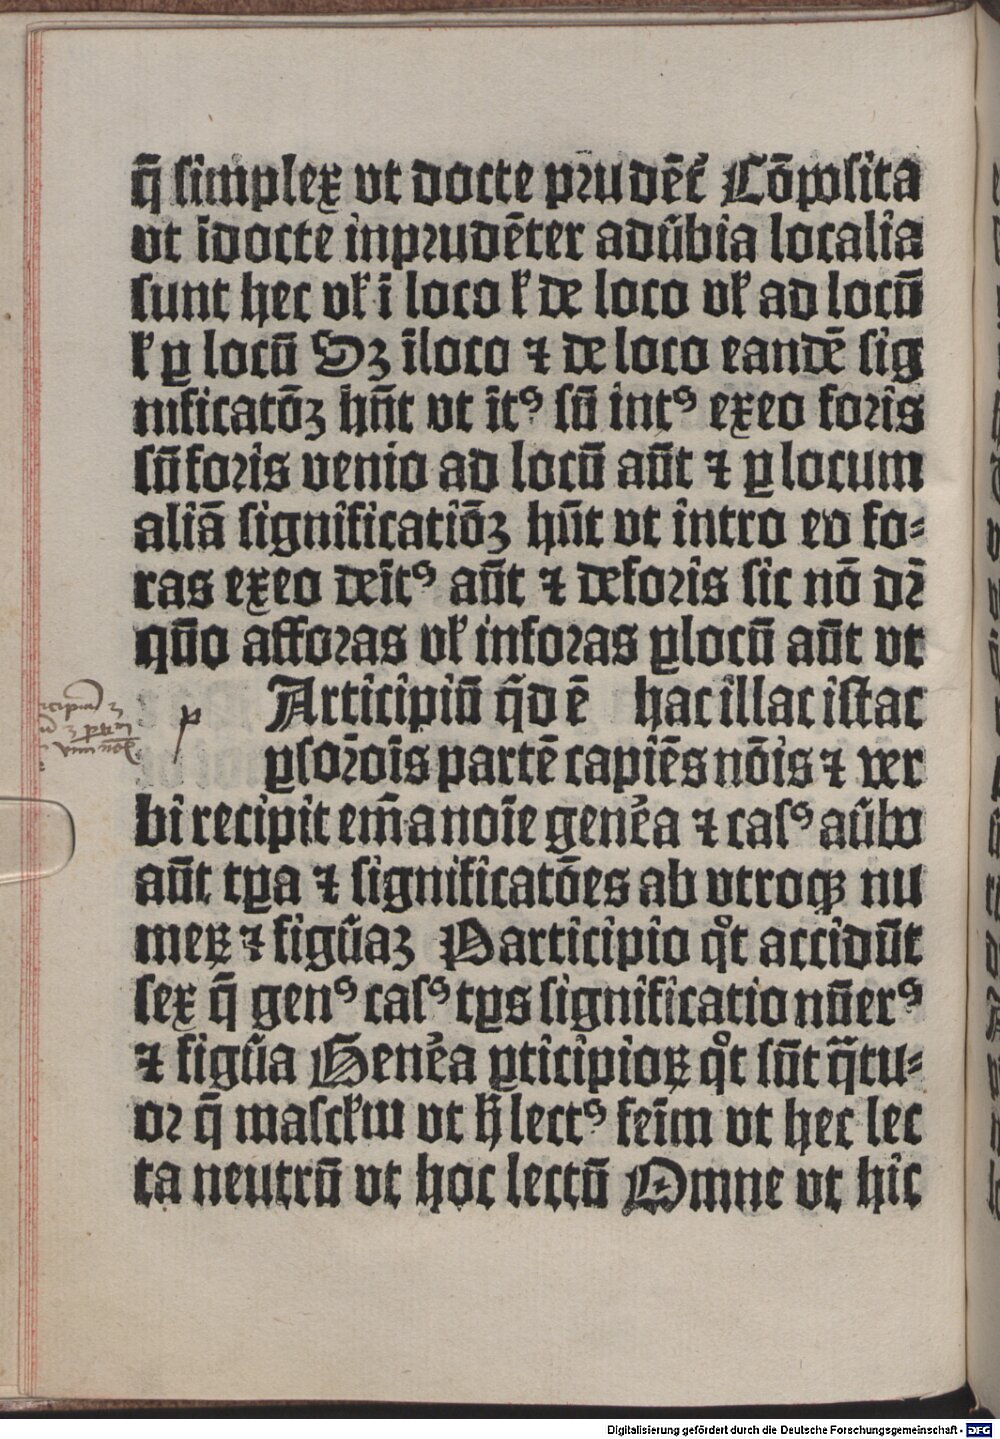 q̄ simplex vt docte prudēt᷑ Cōposita
vt īdocte inprudēter adūbia localia
sunt hec vl᷑ ī loco l᷑ de loco vl᷑ ad locū
l᷑ ꝑ locū Sꝫ īloco ⁊ de loco eandē sig
nificatōꝫ hn̄t vt ītꝰ sū intꝰ exeo foris
sū foris venio ad locū aūt ⁊ ꝑ locum
aliā significatiōꝫ hn̄t vt intro eo fo⸗
ras exeo deītꝰ aūt ⁊ deforis sic nō dr̄
quō afforas vl᷑ inforas ꝑlocū aūt vt
Articipiū qd̄ ē hac illac istac
ꝑs orōis partē capiēs nōis ⁊ ver
bi recipit em̄ a noīe genēa ⁊ casꝰ aūbo
aūt tꝑa ⁊ significatōes ab vtroqꝫ nu
meꝝ ⁊ figūaꝫ Participio qͦt accidūt
sex q̄ genꝰ casꝰ tꝑs significatio nūerꝰ
⁊ figūa Genēa ꝑticipioꝝ qͦt sūt q̄tu⸗
or q̄ mascl᷑m vt h̄ lectꝰ feīm vt hec lec
ta neutrū vt hoc lectū Omne vt hic
p
Digitalisierung gefördert durch die Deutsche Forschungsgemeinschaft - DFG